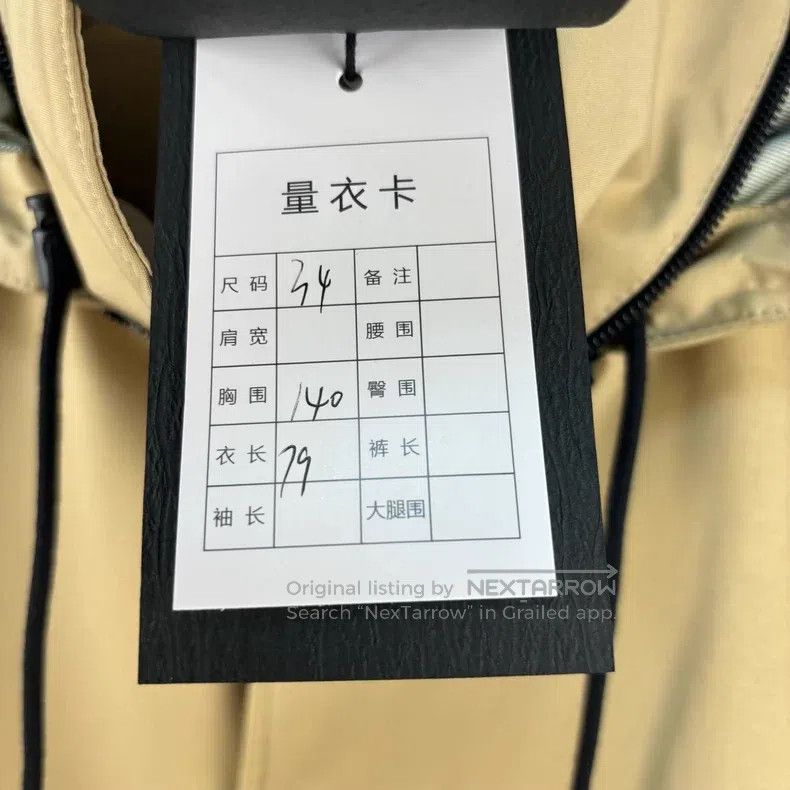 量衣卡
尺码 34 备注
肩宽 腰围
胸围 140 臀围
衣长 79 裤长
袖长 大腿围
Original listing by NEXTARROW
Search "NexTarrow" in Grailed app.